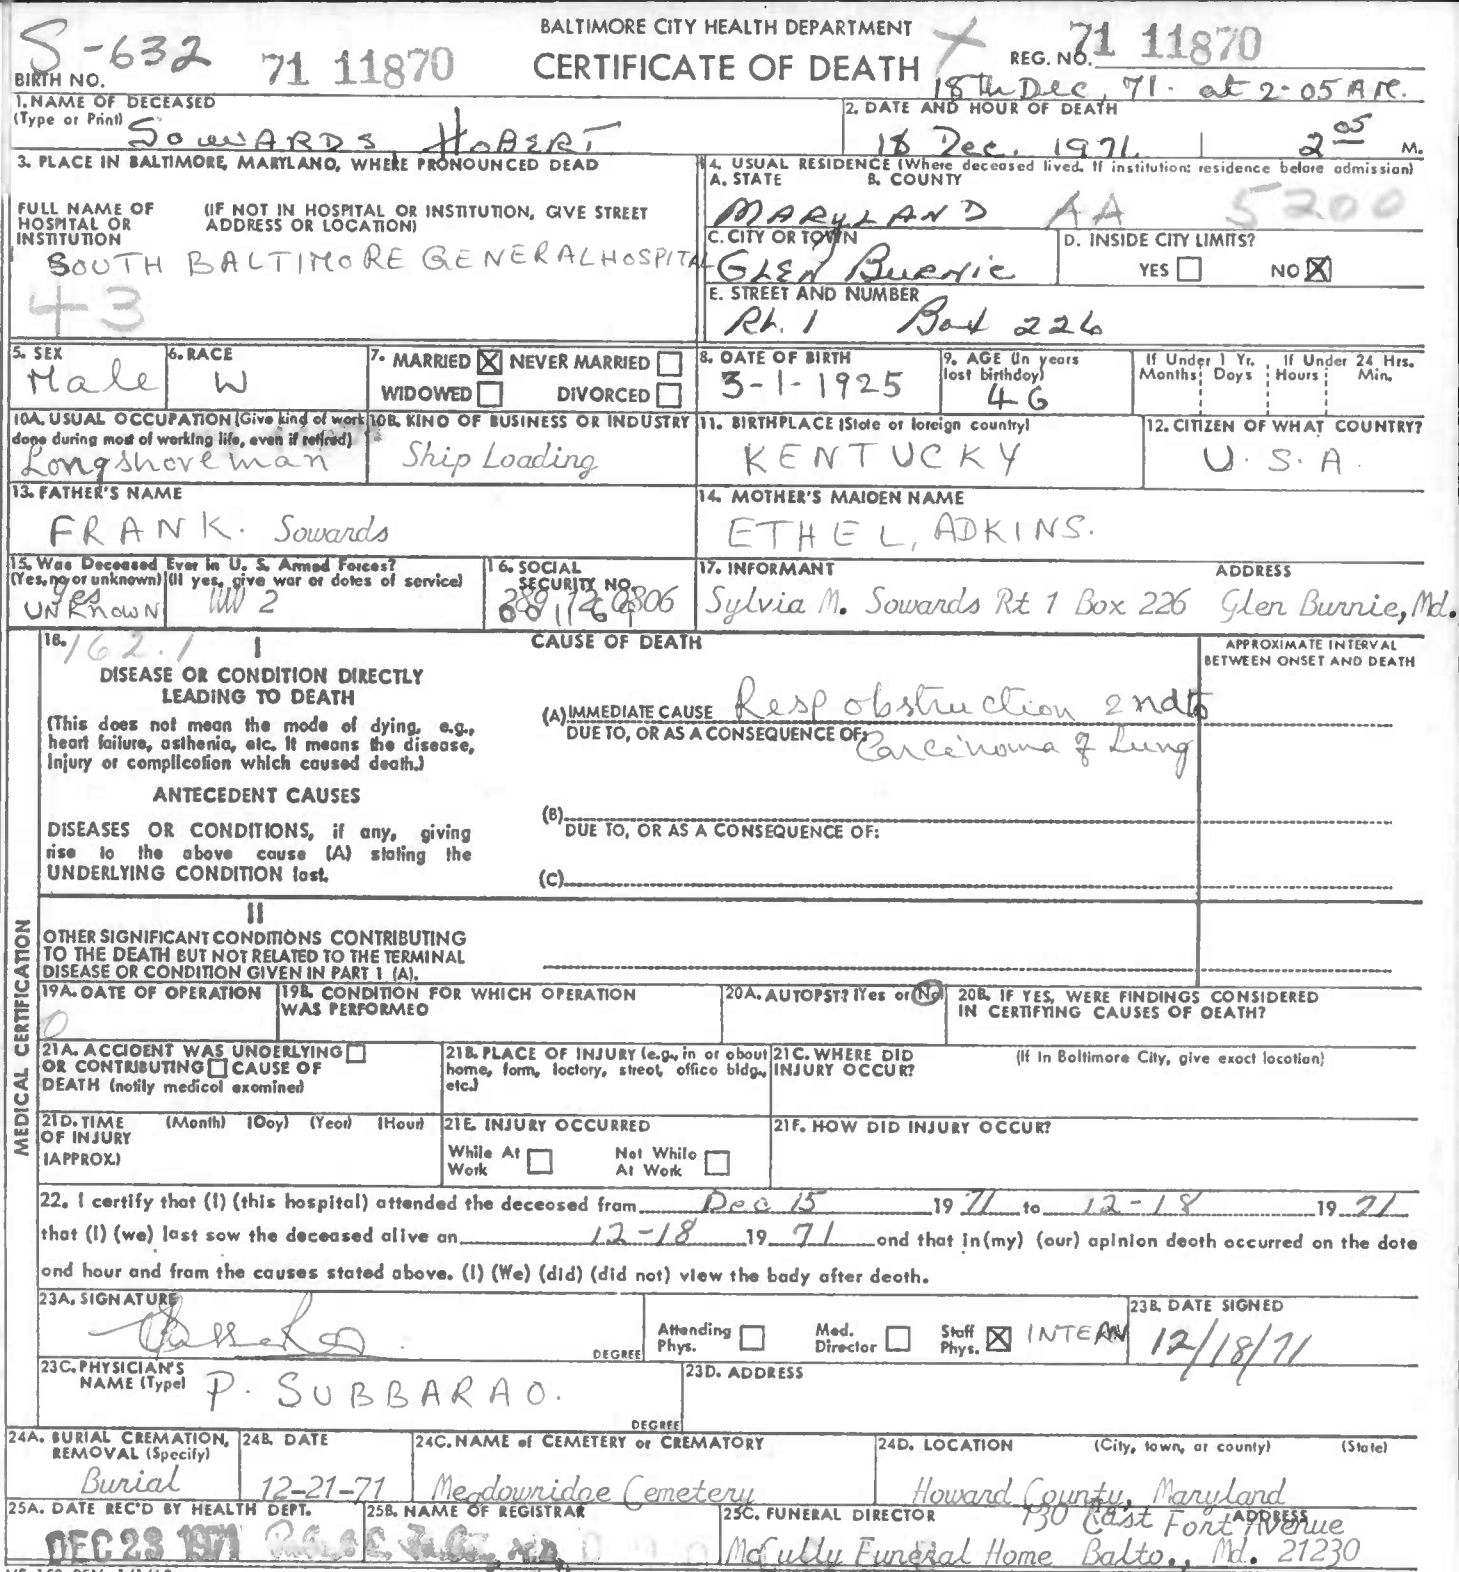 BALTIMORE CITY HEALTH DEPARTMENT
S-632 71 11870 CERTIFICATE OF DEATH X REG. NO. 71 11870
BIRTH NO.
18th Dec, 71. at 2-05 A.M.
1. NAME OF DECEASED
(Type or Print) SOWARDS, HOBERT
2. DATE AND HOUR OF DEATH
18 Dec. 1971 2 05 M.
3. PLACE IN BALTIMORE, MARYLAND, WHERE PRONOUNCED DEAD
FULL NAME OF HOSPITAL OR INSTITUTION
(IF NOT IN HOSPITAL OR INSTITUTION, GIVE STREET ADDRESS OR LOCATION)
SOUTH BALTIMORE GENERAL HOSPITAL
43
4. USUAL RESIDENCE (Where deceased lived. If institution: residence before admission)
A. STATE B. COUNTY
MARYLAND AA 5200
C. CITY OR TOWN
GLEN BURNIE
D. INSIDE CITY LIMITS?
YES NO X
E. STREET AND NUMBER
Rt. 1 Box 226
5. SEX
Male
6. RACE
W
7. MARRIED X NEVER MARRIED
WIDOWED DIVORCED
8. DATE OF BIRTH
3-1-1925
9. AGE (In years last birthday)
46
If Under 1 Yr. If Under 24 Hrs.
Months Days Hours Min.
10A. USUAL OCCUPATION (Give kind of work done during most of working life, even if retired)
Longshoreman
10B. KIND OF BUSINESS OR INDUSTRY
Ship Loading
11. BIRTHPLACE (State or foreign country)
KENTUCKY
12. CITIZEN OF WHAT COUNTRY?
U.S.A.
13. FATHER'S NAME
FRANK. Sowards
14. MOTHER'S MAIDEN NAME
ETHEL, ADKINS.
15. Was Deceased Ever in U. S. Armed Forces?
(Yes, no or unknown) (If yes, give war or dates of service)
yes
UNKNOWN WW 2
16. SOCIAL SECURITY NO.
17. INFORMANT ADDRESS
Sylvia M. Sowards Rt 1 Box 226 Glen Burnie, Md.
MEDICAL CERTIFICATION
18. 162.1 I
CAUSE OF DEATH
APPROXIMATE INTERVAL BETWEEN ONSET AND DEATH
DISEASE OR CONDITION DIRECTLY LEADING TO DEATH
(This does not mean the mode of dying, e.g., heart failure, asthenia, etc. It means the disease, injury or complication which caused death.)
(A) IMMEDIATE CAUSE Resp obstruction 2nd to
DUE TO, OR AS A CONSEQUENCE OF: Carcinoma of Lung
ANTECEDENT CAUSES
DISEASES OR CONDITIONS, if any, giving rise to the above cause (A) stating the UNDERLYING CONDITION last.
(B)
DUE TO, OR AS A CONSEQUENCE OF:
(C)
II
OTHER SIGNIFICANT CONDITIONS CONTRIBUTING TO THE DEATH BUT NOT RELATED TO THE TERMINAL DISEASE OR CONDITION GIVEN IN PART 1 (A).
19A. DATE OF OPERATION
0
19B. CONDITION FOR WHICH OPERATION WAS PERFORMED
20A. AUTOPSY? (Yes or No)
20B. IF YES, WERE FINDINGS CONSIDERED IN CERTIFYING CAUSES OF DEATH?
21A. ACCIDENT WAS UNDERLYING OR CONTRIBUTING CAUSE OF DEATH (notify medical examiner)
21B. PLACE OF INJURY (e.g., in or about home, farm, factory, street, office bldg., etc.)
21C. WHERE DID INJURY OCCUR? (If in Baltimore City, give exact location)
21D. TIME OF INJURY (APPROX.) (Month) (Day) (Year) (Hour)
21E. INJURY OCCURRED
While At Work Not While At Work
21F. HOW DID INJURY OCCUR?
22. I certify that (I) (this hospital) attended the deceased from Dec 15 1971 to 12-18 1971
that (I) (we) last saw the deceased alive on 12-18 1971 and that in (my) (our) opinion death occurred on the date
and hour and from the causes stated above. (I) (We) (did) (did not) view the body after death.
23A. SIGNATURE
DEGREE
Attending Phys. Med. Director Staff Phys. X INTERN
23B. DATE SIGNED
12/18/71
23C. PHYSICIAN'S NAME (Type) P. SUBBARAO.
DEGREE
23D. ADDRESS
24A. BURIAL CREMATION, REMOVAL (Specify)
Burial
24B. DATE
12-21-71
24C. NAME of CEMETERY or CREMATORY
Meadowridge Cemetery
24D. LOCATION (City, town, or county) (State)
Howard County, Maryland
25A. DATE REC'D BY HEALTH DEPT.
DEC 23 1971
25B. NAME OF REGISTRAR
25C. FUNERAL DIRECTOR ADDRESS
130 East Fort Avenue
McCully Funeral Home Balto., Md. 21230